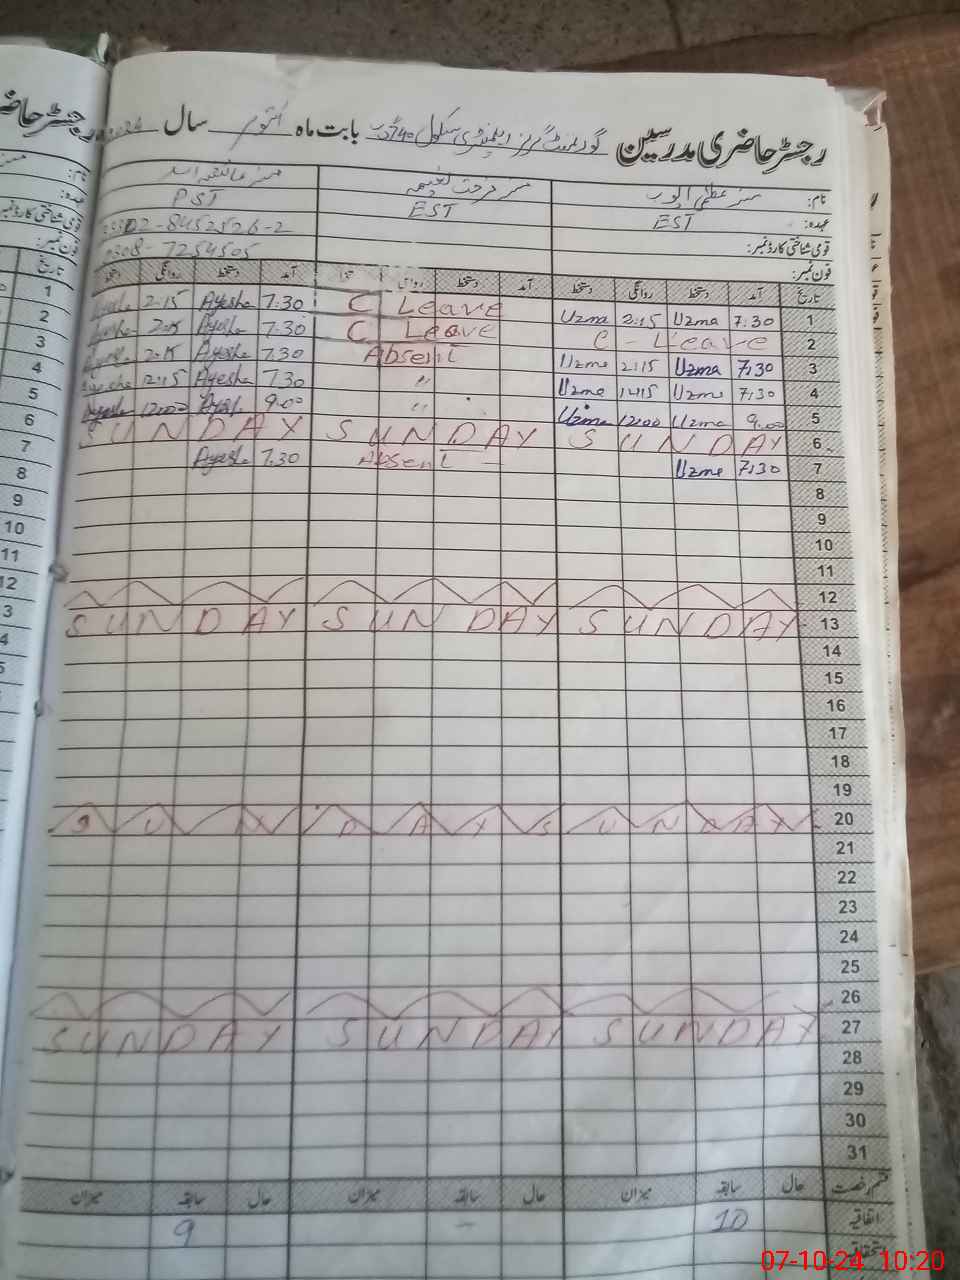 رجسٹر حاضری مدرسین گورنمنٹ گرلز ایلیمنٹری سکول 740 گ ب بابت ماہ اکتوبر سال 2024
نام: مسز عظمیٰ ایوب
عہدہ: EST EST PST
قومی شناختی کارڈ نمبر: 02-8452526-2
فون نمبر: 0308-7254505
تاریخ آمد دستخط روانگی دستخط آمد دستخط روانگی آمد دستخط روانگی دستخط
1 7:30 Uzma 2:15 Uzma C Leave 7.30 Ayesha 2:15 Ayesha
2 C - Leave C Leave 7.30 Ayesha 2:15 Ayesha
3 7:30 Uzma 2:15 Uzma Absent 7.30 Ayesha 2:15 Ayesha
4 7:30 Uzma 12:15 Uzma " 7.30 Ayesha 12:15 Ayesha
5 9:00 Uzma 12:00 Uzma " 9.00 Ayesha 12:00 Ayesha
6 SUNDAY SUNDAY SUNDAY
7 7:30 Uzma Absent 7.30 Ayesha
8
9
10
11
12
13 SUNDAY SUNDAY SUNDAY
14
15
16
17
18
19
20 SUNDAY SUNDAY
21
22
23
24
25
26
27 SUNDAY SUNDAY SUNDAY
28
29
30
31
قسم رخصت حال سابقہ میزان حال سابقہ میزان حال سابقہ میزان
اتفاقیہ 10 - 9
استحقاقی
07-10-24 10:20